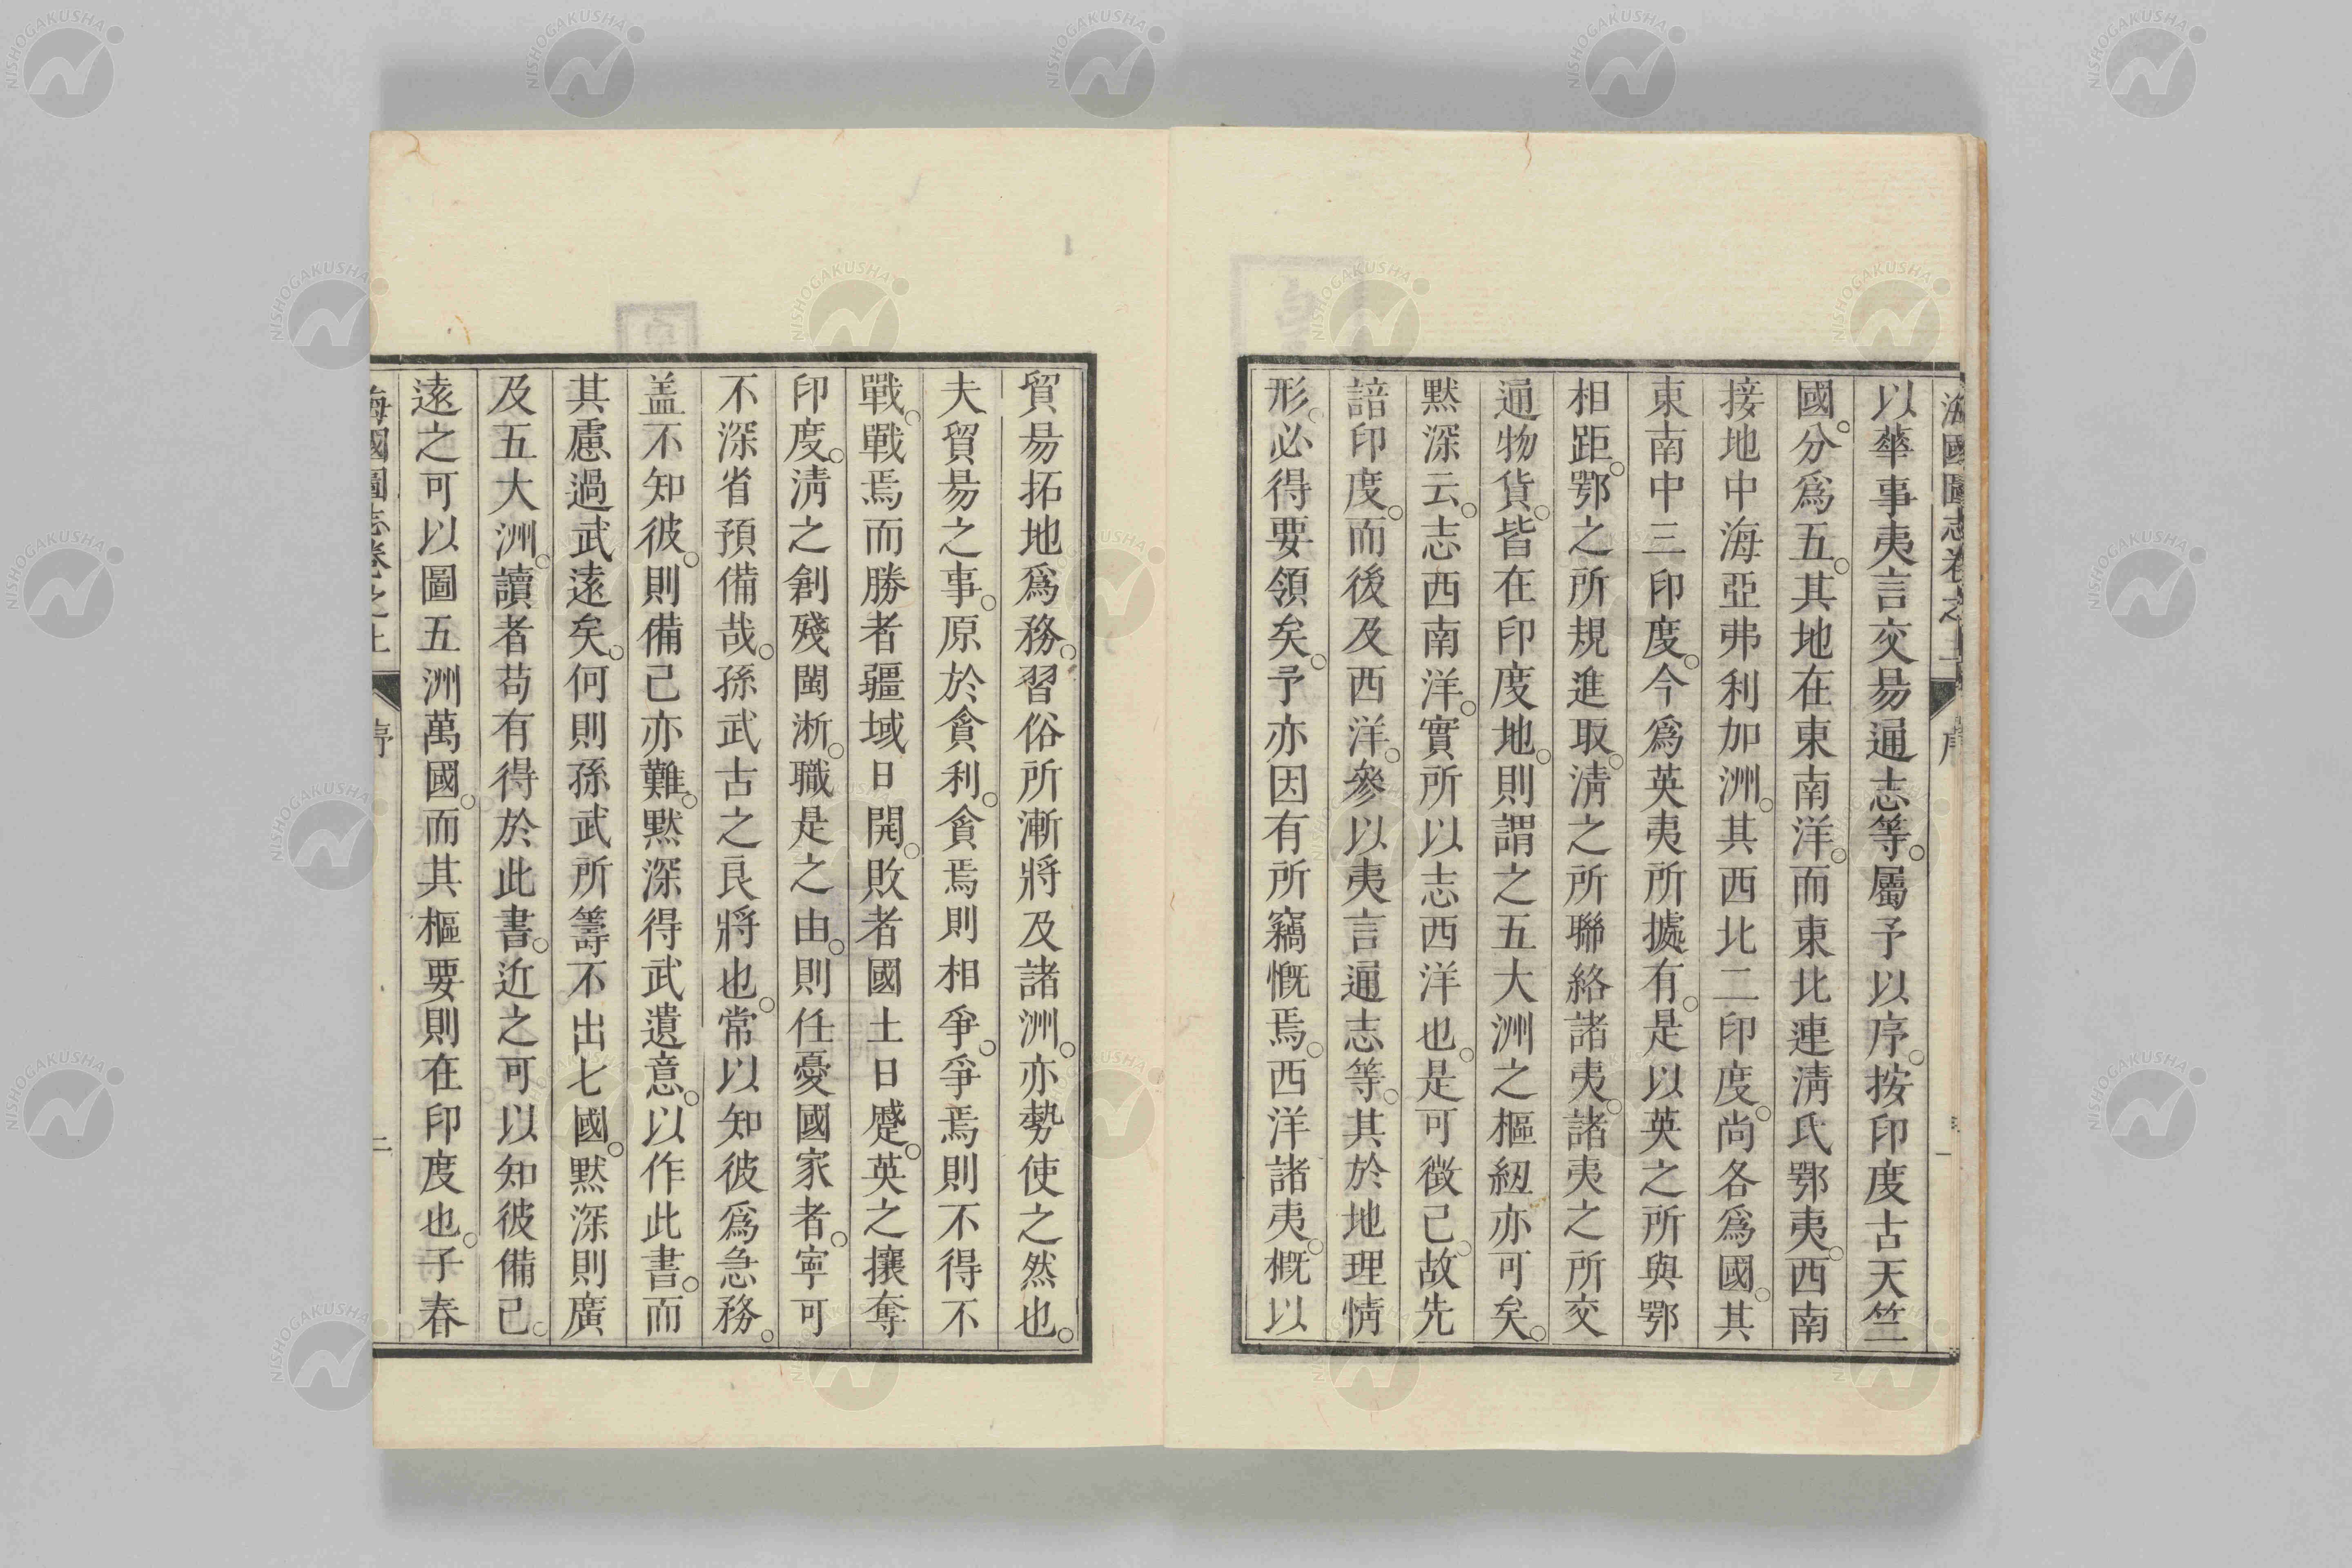 海國圖志卷之上 序 一
以華事夷言交易通志等。屬予以序。按印度古天竺
國。分爲五。其地在東南洋。而東北連淸氏鄂夷。西南
接地中海亞弗利加洲。其西北二印度。尚各爲國。其
東南中三印度。今爲英夷所據有。是以英之所與鄂
相距。鄂之所規進取。淸之所聯絡諸夷。諸夷之所交
通物貨。皆在印度地。則謂之五大洲之樞紐亦可矣。
默深云。志西南洋。實所以志西洋也。是可徴己。故先
諳印度。而後及西洋。參以夷言通志等。其於地理情
形。必得要領矣。予亦因有所竊慨焉。西洋諸夷。概以
貿易拓地爲務。習俗所漸將及諸洲。亦勢使之然也。
夫貿易之事。原於貪利。貪焉則相爭。爭焉則不得不
戰。戰焉而勝者疆域日開。敗者國土日蹙。英之攘奪
印度。淸之創殘閩淅。職是之由。則任憂國家者。寧可
不深省預備哉。孫武古之良將也。常以知彼爲急務。
盖不知彼。則備己亦難。默深得武遺意。以作此書。而
其慮過武遠矣。何則孫武所籌不出七國。默深則廣
及五大洲。讀者苟有得於此書。近之可以知彼備己。
遠之可以圖五洲萬國。而其樞要則在印度也。子春
海國圖志卷之上 序 二
NISHOGAKUSHA